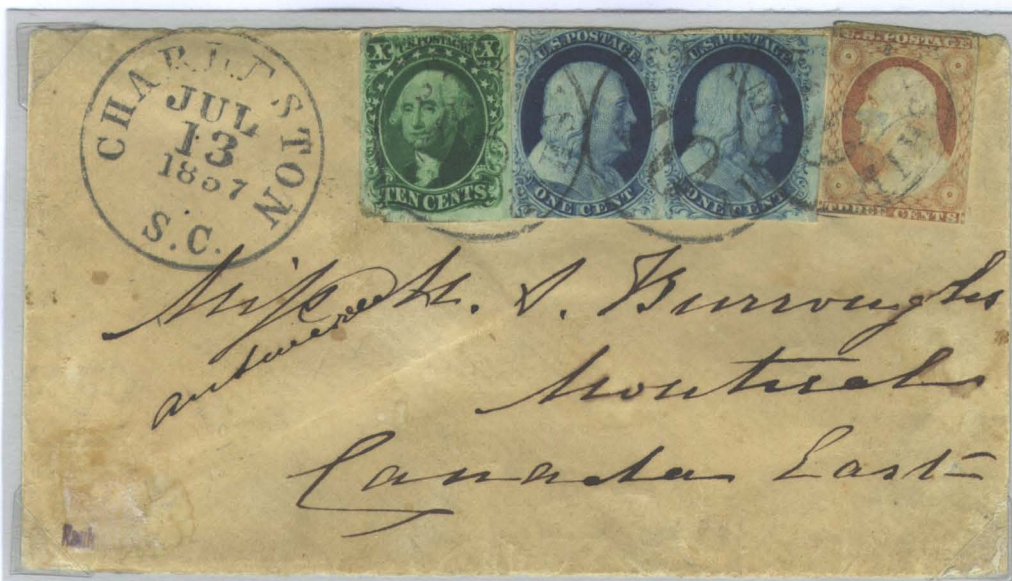 CHARLESTON
JUL
13
1857
S.C.
X U.S. POSTAGE X
TEN CENTS
U.S. POSTAGE
ONE CENT
U.S. POSTAGE
ONE CENT
U.S. POSTAGE
THREE CENTS
Miss M. S. Burroughs
answered
Montreal
Canada East